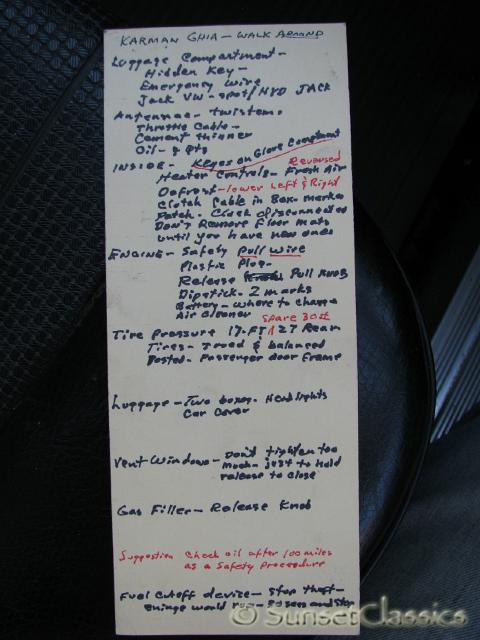 KARMAN GHIA - WALK AROUND
Luggage Compartment -
Hidden Key -
Emergency Wire
Jack VW - spot / HYD JACK
Antennae - twistem.
Throttle Cable -
Cement thinner
Oil - 2 qts
INSIDE - Keyes on Glove Compment
Reversed
Heater Controls - Fresh Air
Defrost - lower Left & Right
Clutch Cable in Box. marked
Patch. Clock disconnected
Don't Remove Floor mats
until you have new ones
ENGINE - Safety Pull Wire
Plastic Plug -
Release Pull Knob
Dipstick - 2 marks
Battery - where to charge
Air Cleaner
Spare 30 lbs
Tire Pressure 17-FT ^ 27 Rear
Tires - Trued & balanced
Posted - Passenger door frame
Luggage - Two boxes - Headlights
Car Cover
Vent Windows - Don't tighten too
much - just to hold
release to close
Gas Filler - Release Knob
Suggestion Check oil after 100 miles
as a Safety Proceedure
Fuel Cutoff device - stop theft -
Engine would run - and stop
SunsetClassics